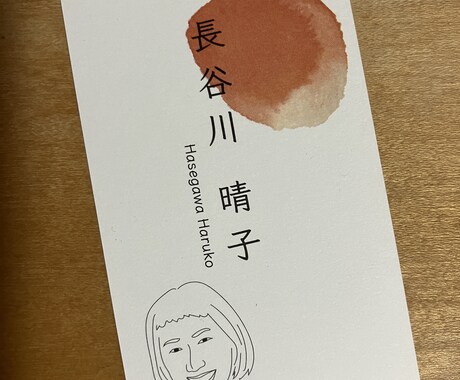 長谷川 晴子
Hasegawa Haruko